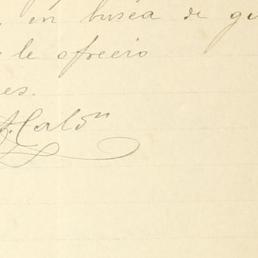 en busca de
le ofreció
es.
A. Calón